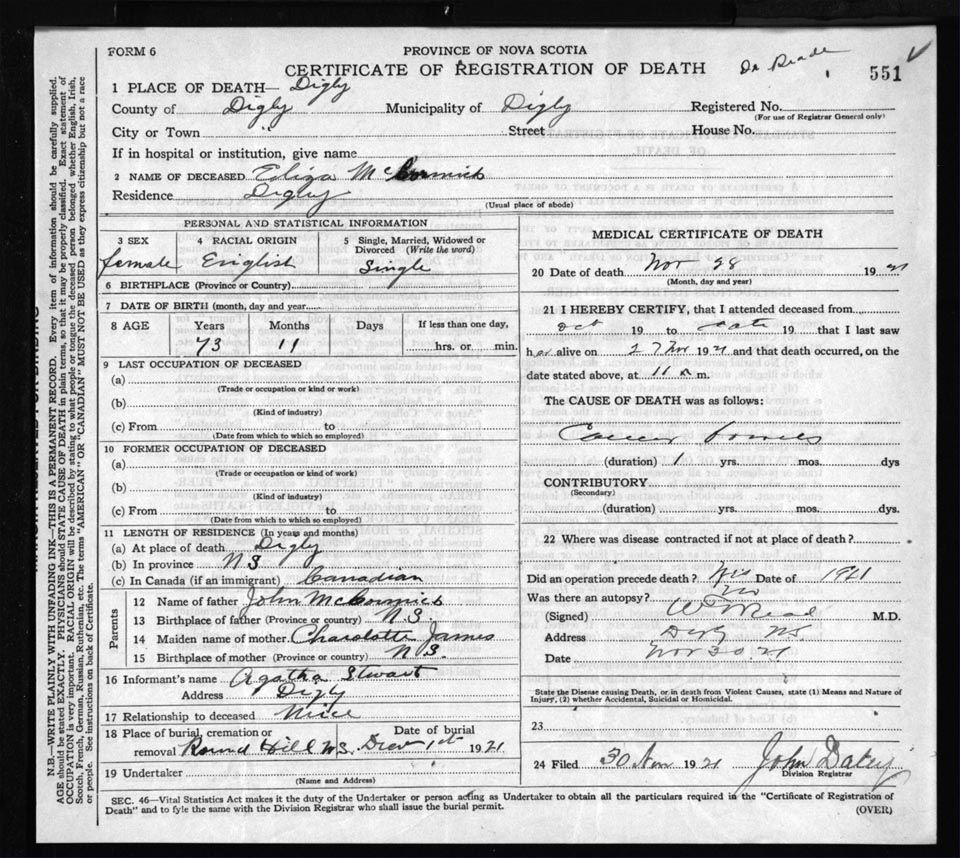 FORM 6
PROVINCE OF NOVA SCOTIA
CERTIFICATE OF REGISTRATION OF DEATH
551
1 PLACE OF DEATH— Digby
County of Digby Municipality of Digby Registered No.
(For use of Registrar General only)
City or Town " Street House No.
If in hospital or institution, give name
2 NAME OF DECEASED Eliza McCormick
Residence Digby
(Usual place of abode)
PERSONAL AND STATISTICAL INFORMATION
3 SEX 4 RACIAL ORIGIN 5 Single, Married, Widowed or Divorced (Write the word)
female English Single
6 BIRTHPLACE (Province or Country)
7 DATE OF BIRTH (month, day and year)
8 AGE Years Months Days If less than one day,
73 11 hrs. or min.
9 LAST OCCUPATION OF DECEASED
(a)
(Trade or occupation or kind or work)
(b)
(Kind of industry)
(c) From to
(Date from which to which so employed)
10 FORMER OCCUPATION OF DECEASED
(a)
(Trade or occupation or kind of work)
(b)
(Kind of industry)
(c) From to
(Date from which to which so employed)
11 LENGTH OF RESIDENCE (In years and months)
(a) At place of death Digby
(b) In province N S
(c) In Canada (if an immigrant) Canadian
Parents
12 Name of father John McCormick
13 Birthplace of father (Province or country) N S.
14 Maiden name of mother Charolotte James
15 Birthplace of mother (Province or country) N S.
16 Informant's name Agatha Stwart
Address Digby
17 Relationship to deceased Niece
18 Place of burial, cremation or removal Round Hill N.S. Date of burial Dec 1st 1921
19 Undertaker
(Name and Address)
MEDICAL CERTIFICATE OF DEATH
20 Date of death Nov 28 1921
(Month, day and year)
21 I HEREBY CERTIFY, that I attended deceased from
Oct 19 to date 19 that I last saw
her alive on 27 Nov 1921 and that death occurred, on the
date stated above, at 11 a m.
The CAUSE OF DEATH was as follows:
Cancer
(duration) 1 yrs. mos. dys
CONTRIBUTORY
(Secondary)
(duration) yrs. mos. dys.
22 Where was disease contracted if not at place of death?
Did an operation precede death? Date of 1921
Was there an autopsy? No
(Signed) M.D.
Address Digby NS
Date Nov 30. 21
State the Disease causing Death, or in death from Violent Causes, state (1) Means and Nature of
Injury, (2) whether Accidental, Suicidal or Homicidal.
23
24 Filed 30 Nov 1921 John Daley
Division Registrar
SEC. 46—Vital Statistics Act makes it the duty of the Undertaker or person acting as Undertaker to obtain all the particulars required in the "Certificate of Registration of
Death" and to fyle the same with the Division Registrar who shall issue the burial permit.
(OVER)
N.B.—WRITE PLAINLY WITH UNFADING INK—THIS IS A PERMANENT RECORD. Every item of information should be carefully supplied.
AGE should be stated EXACTLY. PHYSICIANS should STATE CAUSE OF DEATH in plain terms, so that it may be properly classified. Exact statement of
OCCUPATION is very important. RACIAL ORIGIN will be described by stating to what people or tongue the deceased person belonged whether English, Irish,
Scotch, French, German, Russian, Ruthenian, etc. The terms "AMERICAN" OR "CANADIAN" MUST NOT BE USED as they express citizenship but not a race
or people. See instructions on back of Certificate.